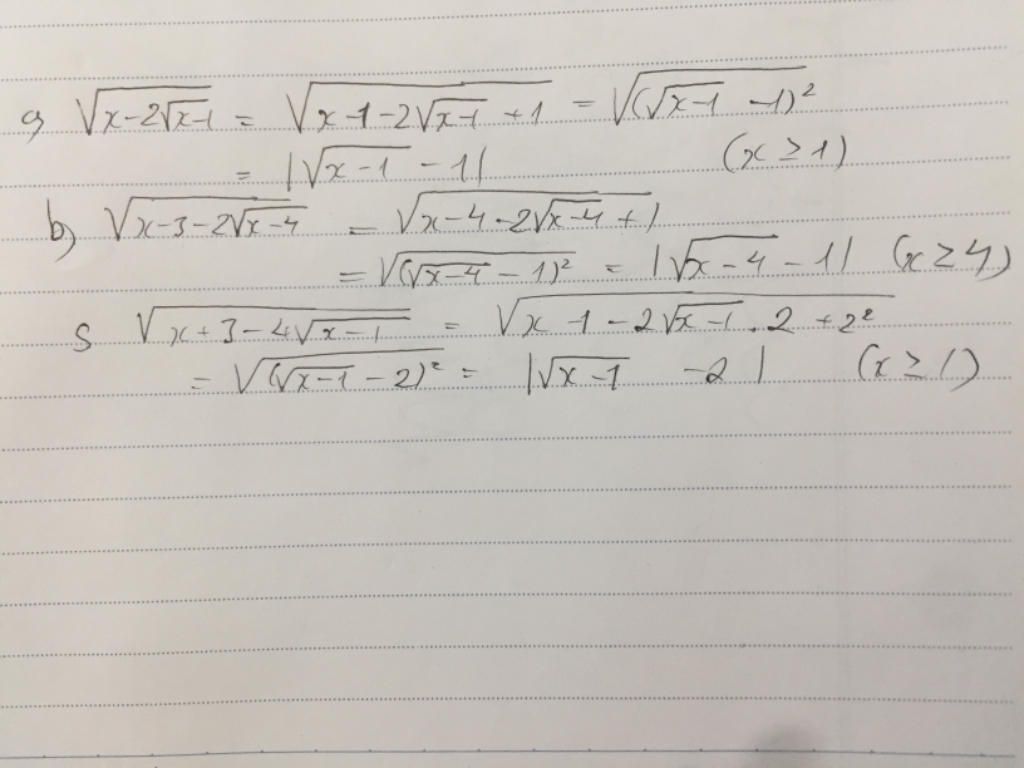 a) √(x-2√(x-1)) = √(x-1-2√(x-1) +1) = √((√(x-1) -1)²)
= |√(x-1) - 1| (x ≥ 1)
b) √(x-3-2√(x-4)) = √(x-4-2√(x-4) +1)
= √((√(x-4) - 1)²) = |√(x-4) - 1| (x ≥ 4)
c √(x+3-4√(x-1)) = √(x 1-2√(x-1) . 2 +2²)
= √((√(x-1) - 2)²) = |√(x-1) -2| (x ≥ 1)